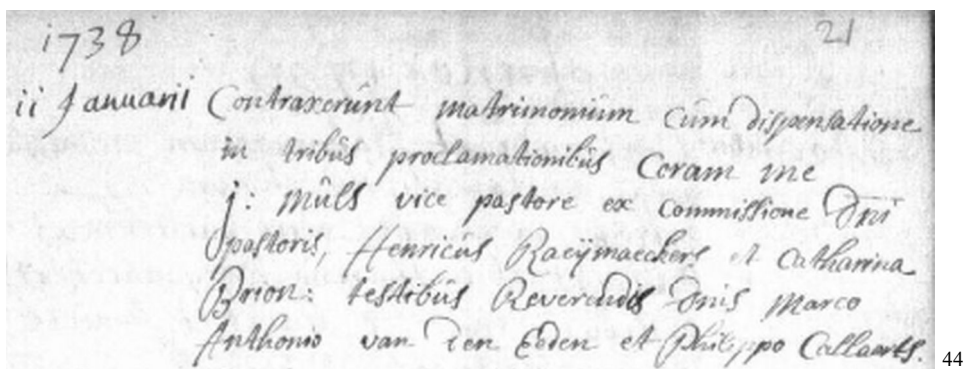 1738 21
ii Januarii Contraxerunt matrimonium cum dispensatione
in tribus proclamationibus Coram me
j: Mûls vice pastore ex commissione Dni
pastoris, Henricus Raeÿmaeckers et Catharina
Brion: testibus Reverendis Dnis Marco
Anthonio van den Eeden et Philippo Callaerts.
44